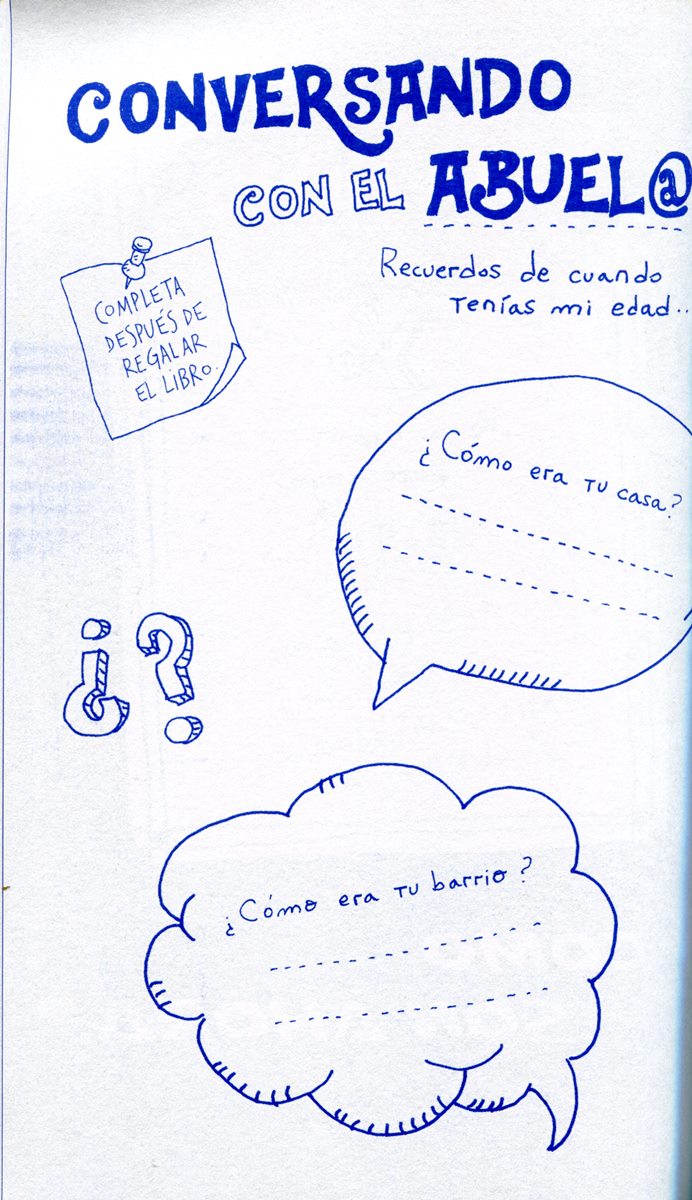 CONVERSANDO
CON EL ABUEL@
Recuerdos de cuando
tenías mi edad..
COMPLETA
DESPUÉS DE
REGALAR
EL LIBRO.
¿Cómo era tu casa?
¿?
¿Cómo era tu barrio?